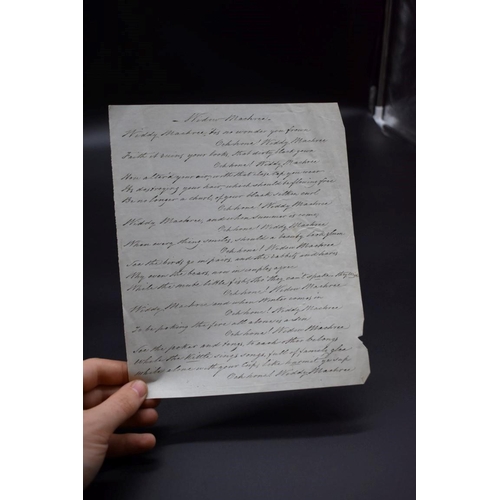 Widow Machree.
Widdy Machree, Its no wonder you frown
Ochhone! Widdy Machree
Faith it ruins your looks, that dirty black gown
Ochhone! Widdy Machree
How altered your air, with that close cap you wear
Tis destroying your hair, which should be flowing free
Be no longer a churl, of your black silken curl
Ochhone! Widdy Machree
Widdy Machree, and when summer is
Ochhone! Widdy Machree
When every thing smiles, should a beauty look glum
Ochhone! Widow Machree
See the birds go in pairs, and the rabbits and hares
Why even the bears, now in couples agree
While the mute little fish, tho' they can't spake, they wish
Ochhone! Widow Machree
Widdy Machree and when Winter comes in
Ochhone! Widow Machree
To be poking the fire, all alone is a sin
Ochhone! Widow Machree
See the poker and tongs, to each other belongs
While the Kettle sings songs, full of family glee
while alone with your cup, like a hermit you sup
Ochhone! Widdy Machree